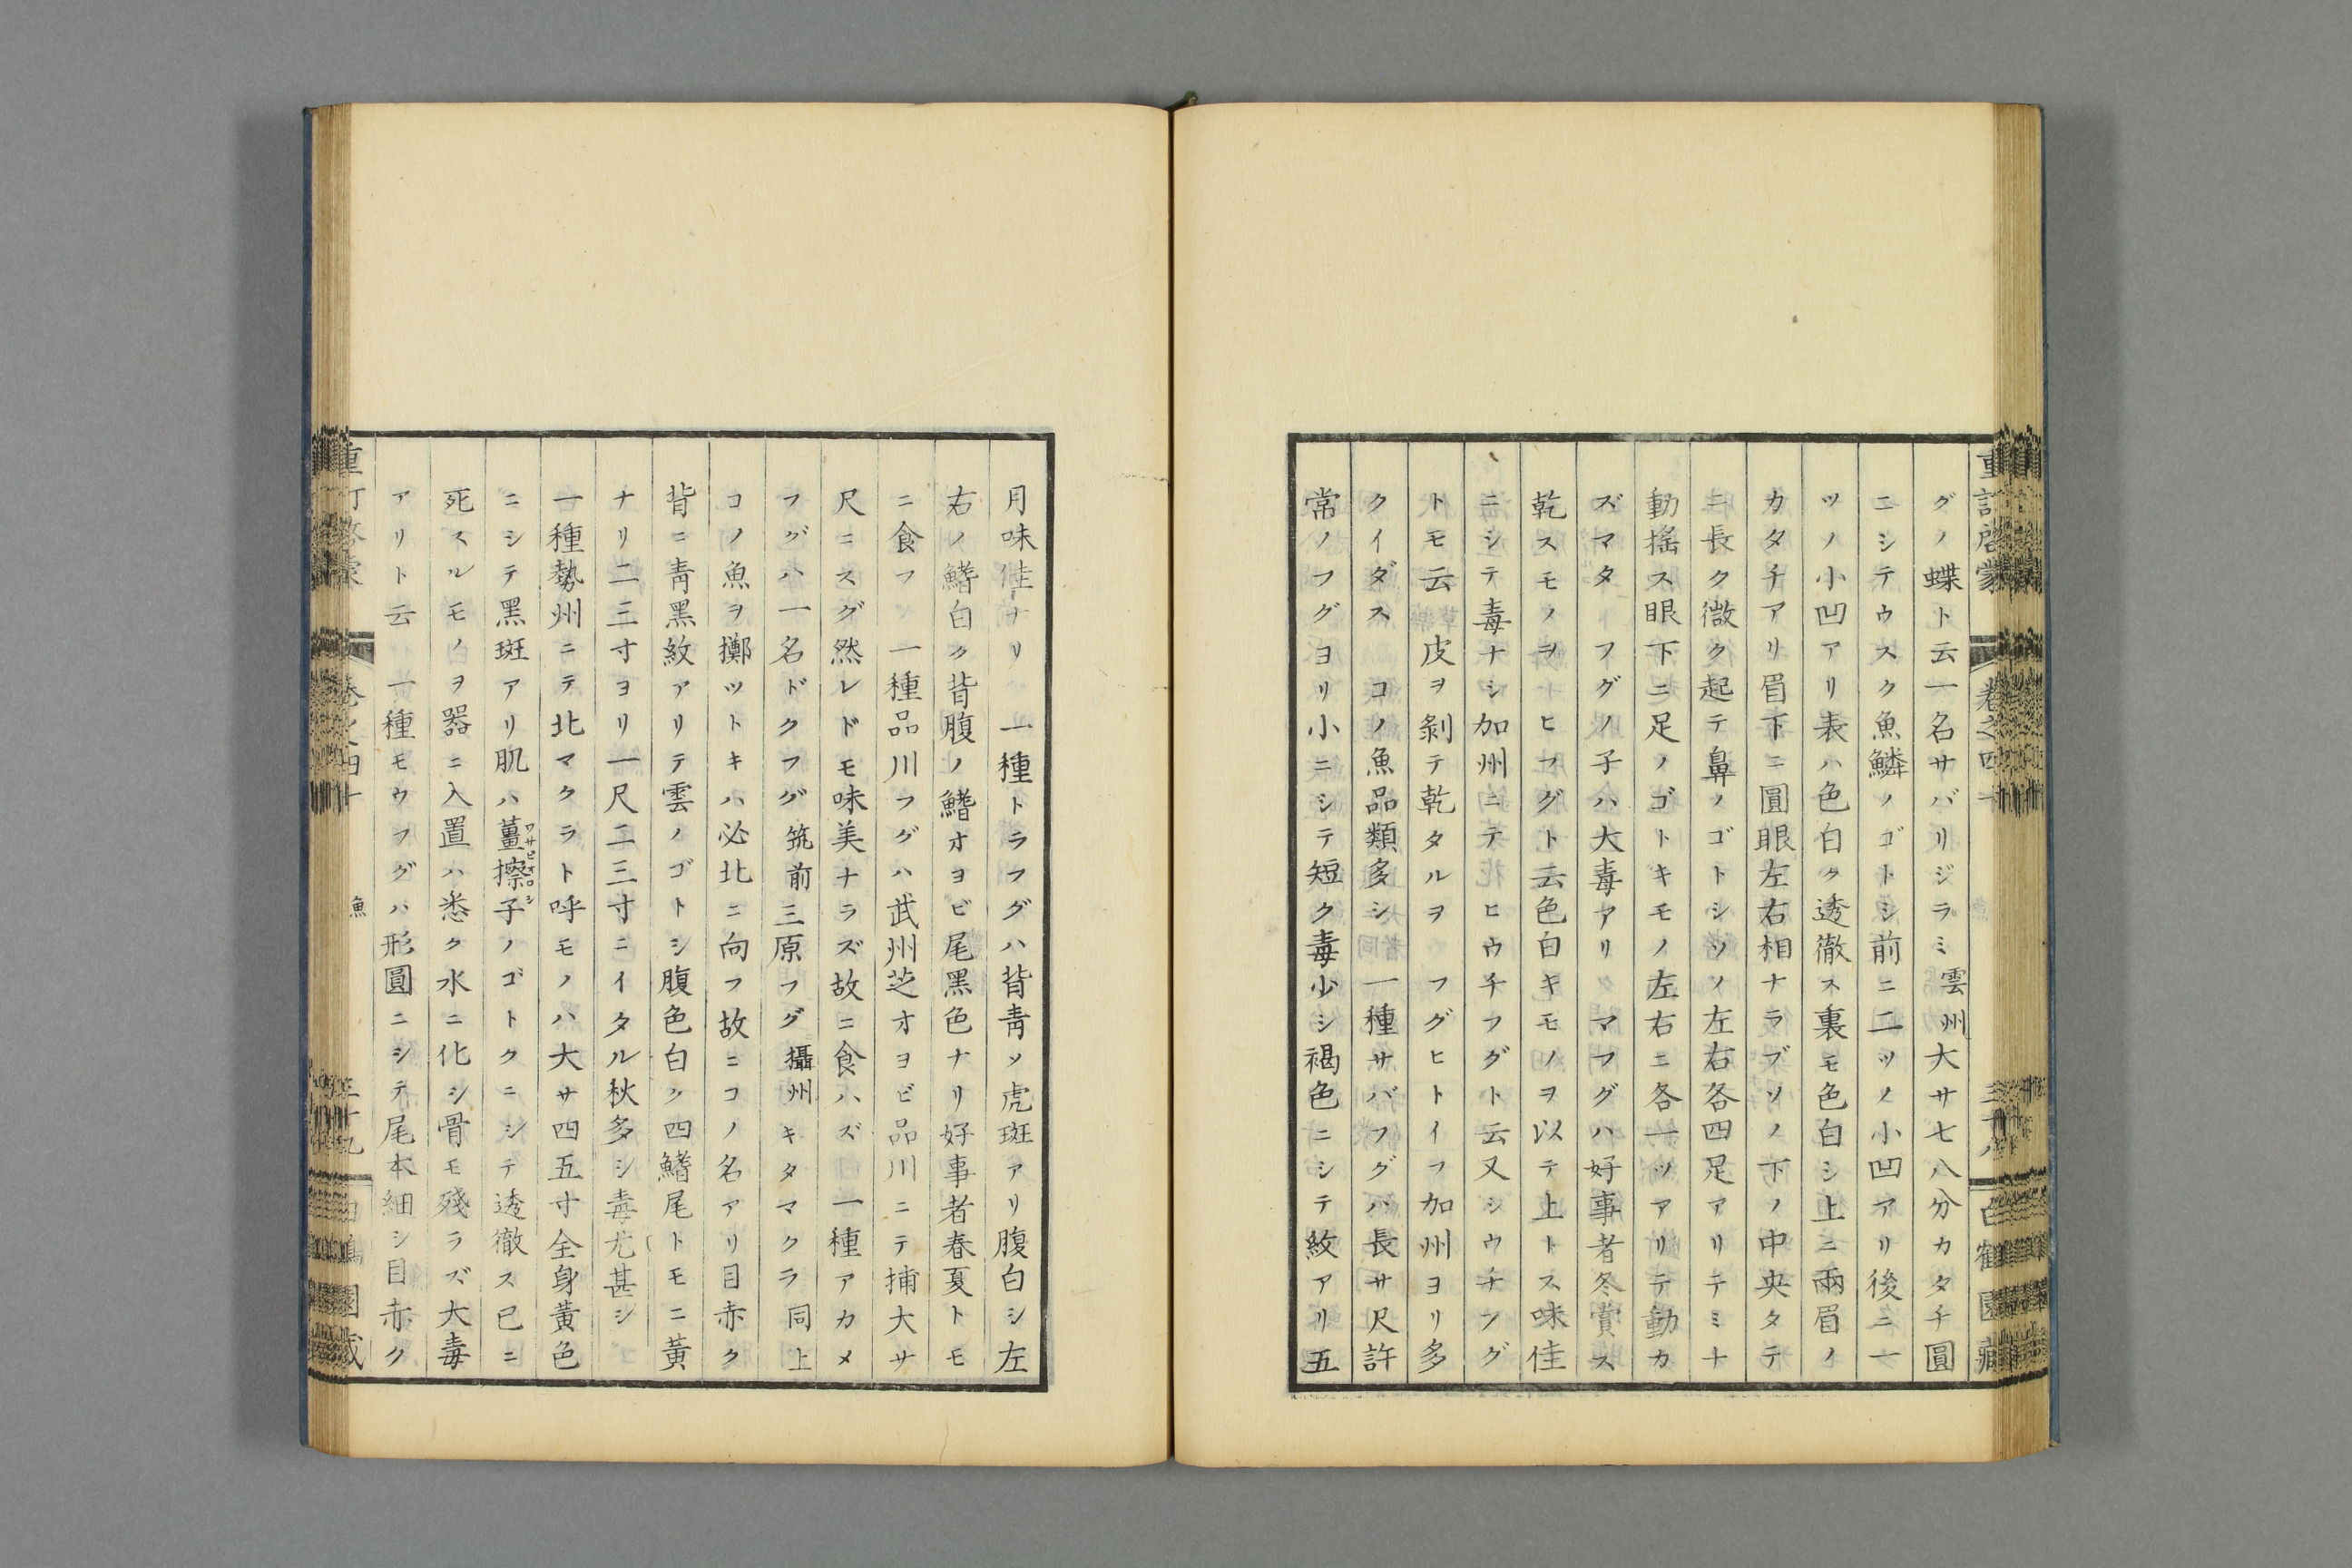 重訂啓蒙 卷之四十 三十八 白鶴園藏
グノ蝶ト云一名サバリジラミ雲州大サ七八分カタチ圓
ニシテウスク魚鱗ノゴトシ前ニ二ツノ小凹アリ後ニ一
ツノ小凹アリ表ハ色白ク透徹ス裏モ色白シ上ニ兩眉ノ
カタチアリ眉下ニ圓眼左右相ナラブソノ下ノ中央タテ
ニ長ク微ク起テ鼻ノゴトシソノ左右各四足アリテミナ
動搖ス眼下ニ足ノゴトキモノ左右ニ各一ツアリテ動カ
ズマタ フグノ子ハ大毒アリ マフグハ好事者冬賞ス
乾スモノヲ ヒフグト云色白キモノヲ以テ上トス味佳
ニシテ毒ナシ加州ニテ ヒウチフグト云又シウチフグ
トモ云 皮ヲ剝テ乾タルヲ フグヒトイフ加州ヨリ多
クイダス コノ魚品類多シ 一種サバフグハ長サ尺許
常ノフグヨリ小ニシテ短ク毒少シ褐色ニシテ紋アリ五
月味佳ナリ 一種トラフグハ背青ソ虎斑アリ腹白シ左
右ノ鰭白ク背腹ノ鰭オヨビ尾黑色ナリ好事者春夏トモ
ニ食フ 一種品川フグハ武州芝オヨビ品川ニテ捕大サ
尺ニスグ然レドモ味美ナラズ故ニ食ハズ 一種アカメ
フグハ一名ドクフグ筑前三原フグ攝州キタマクラ同上
コノ魚ヲ擲ツトキハ必北ニ向フ故ニコノ名アリ目赤ク
背ニ青黑紋アリテ雲ノゴトシ腹色白ク四鰭尾トモニ黄
ナリ二三寸ヨリ一尺二三寸ニイタル秋多シ毒尤甚シ
一種勢州ニテ北マクラト呼モノハ大サ四五寸全身黄色
ニシテ黑斑アリ肌ハ薑擦子ワサビオロシノゴトクニシテ透徹ス已ニ
死スルモノヲ器ニ入置ハ悉ク水ニ化シ骨モ殘ラズ大毒
アリト云 一種モウフグハ形圓ニシテ尾本細シ目赤ク
重訂啓蒙 卷之四十 魚 三十九